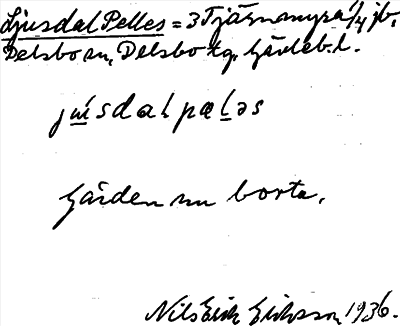 Ljusdal Pelles = 3 Tjärnamyra 1/4 jb,
Delsbo sn, Delsbo tg. Gävleb. l.
jʉ́sdal pæləs
Gården nu borta.
Nils Erik Eriksson 1936.